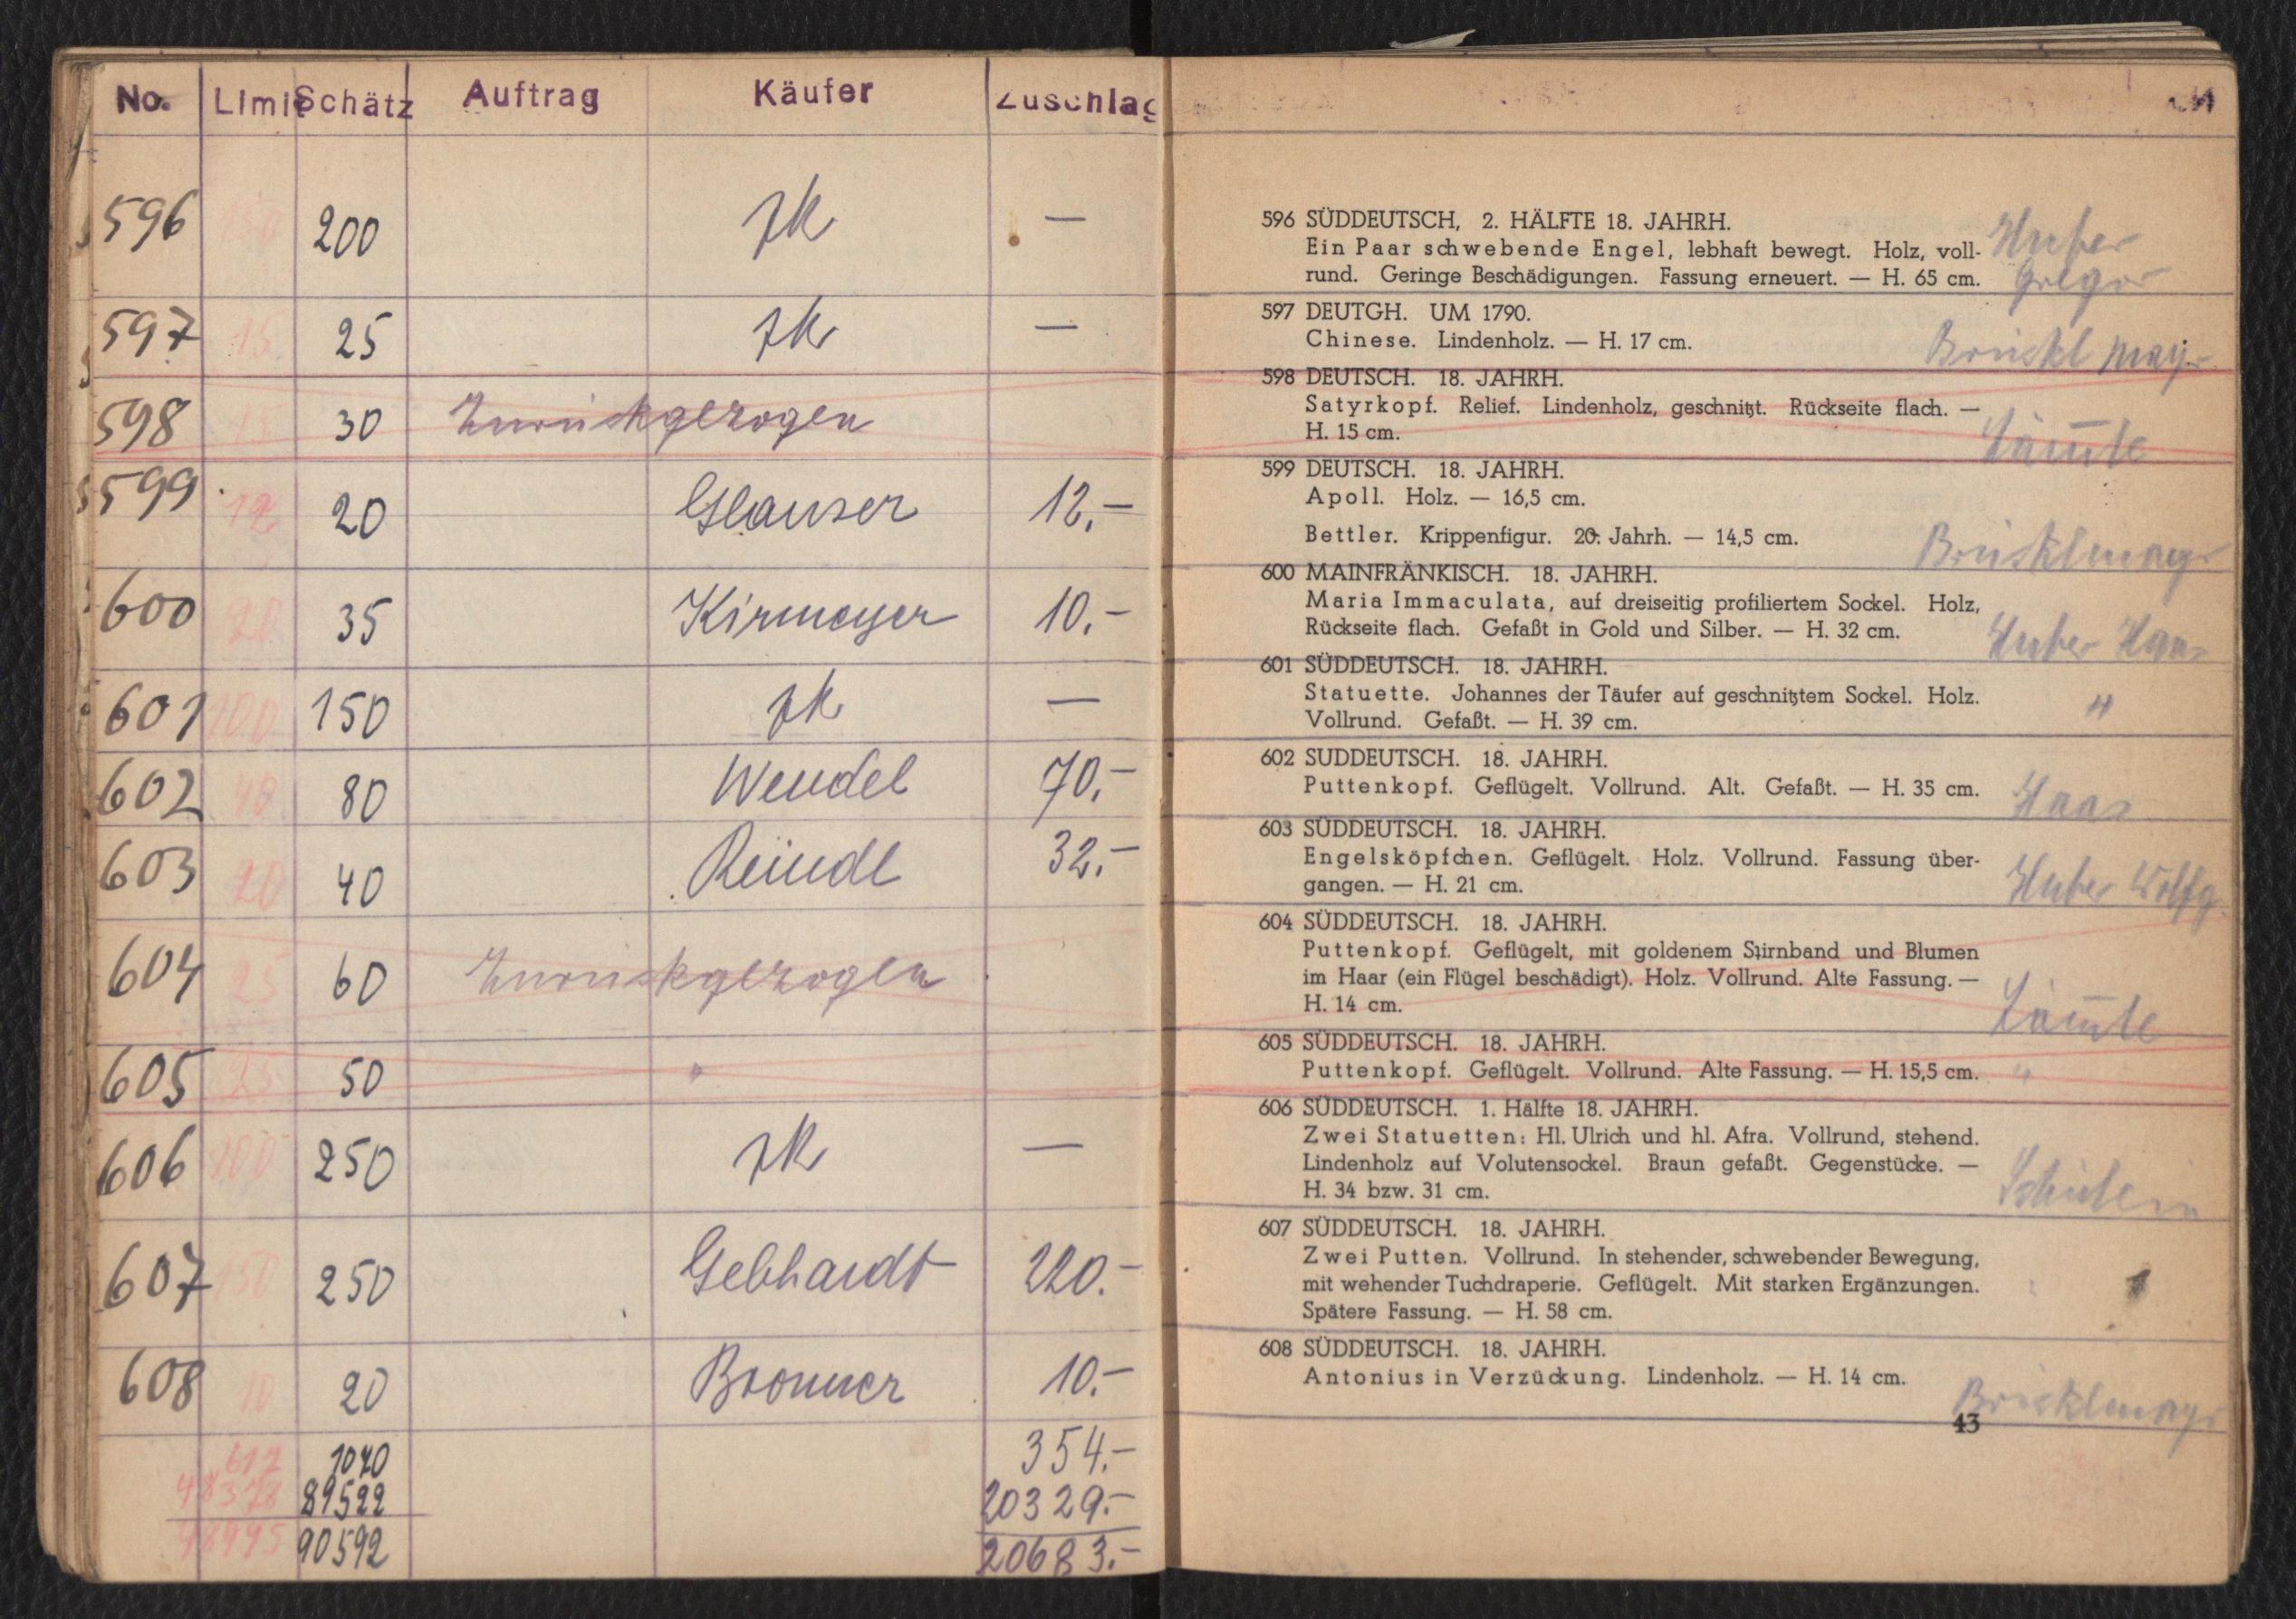 No. Limit Schätz Auftrag Käufer Zuschlag
596 150 200 zk —
597 15 25 zk —
598 15 30 Zurückgezogen
599 12 20 Glauser 12.—
600 20 35 Kirmeyer 10.—
601 100 150 zk —
602 40 80 Wendel 70.—
603 20 40 Reindl 32.—
604 25 60 Zurückgezogen
605 25 50 "
606 200 250 zk —
607 150 250 Gebhardt 220.—
608 10 20 Bronner 10.—
617 1070 354.—
48378 89522 20329.—
48995 90592 20683.—
596 SÜDDEUTSCH, 2. HÄLFTE 18. JAHRH.
Ein Paar schwebende Engel, lebhaft bewegt. Holz, voll- Huber
rund. Geringe Beschädigungen. Fassung erneuert. — H. 65 cm. Gregor
597 DEUTGH. UM 1790.
Chinese. Lindenholz. — H. 17 cm. Brücklmayr
598 DEUTSCH. 18. JAHRH.
Satyrkopf. Relief. Lindenholz, geschnitzt. Rückseite flach. —
H. 15 cm.
599 DEUTSCH. 18. JAHRH.
Apoll. Holz. — 16,5 cm.
Bettler. Krippenfigur. 20. Jahrh. — 14,5 cm. Brücklmayr
600 MAINFRÄNKISCH. 18. JAHRH.
Maria Immaculata, auf dreiseitig profiliertem Sockel. Holz,
Rückseite flach. Gefaßt in Gold und Silber. — H. 32 cm. Huber Hans
601 SÜDDEUTSCH. 18. JAHRH.
Statuette. Johannes der Täufer auf geschnitztem Sockel. Holz. "
Vollrund. Gefaßt. — H. 39 cm.
602 SUDDEUTSCH. 18. JAHRH.
Puttenkopf. Geflügelt. Vollrund. Alt. Gefaßt. — H. 35 cm. Haas
603 SÜDDEUTSCH. 18. JAHRH.
Engelsköpfchen. Geflügelt. Holz. Vollrund. Fassung über-
gangen. — H. 21 cm. Huber Wolfg.
604 SÜDDEUTSCH. 18. JAHRH.
Puttenkopf. Geflügelt, mit goldenem Stirnband und Blumen
im Haar (ein Flügel beschädigt). Holz. Vollrund. Alte Fassung. —
H. 14 cm.
605 SÜDDEUTSCH. 18. JAHRH.
Puttenkopf. Geflügelt. Vollrund. Alte Fassung. — H. 15,5 cm. "
606 SÜDDEUTSCH. 1. Hälfte 18. JAHRH.
Zwei Statuetten: Hl. Ulrich und hl. Afra. Vollrund, stehend.
Lindenholz auf Volutensockel. Braun gefaßt. Gegenstücke. —
H. 34 bzw. 31 cm.
607 SÜDDEUTSCH. 18. JAHRH.
Zwei Putten. Vollrund. In stehender, schwebender Bewegung,
mit wehender Tuchdraperie. Geflügelt. Mit starken Ergänzungen.
Spätere Fassung. — H. 58 cm.
608 SÜDDEUTSCH. 18. JAHRH.
Antonius in Verzückung. Lindenholz. — H. 14 cm. Brücklmayr
43